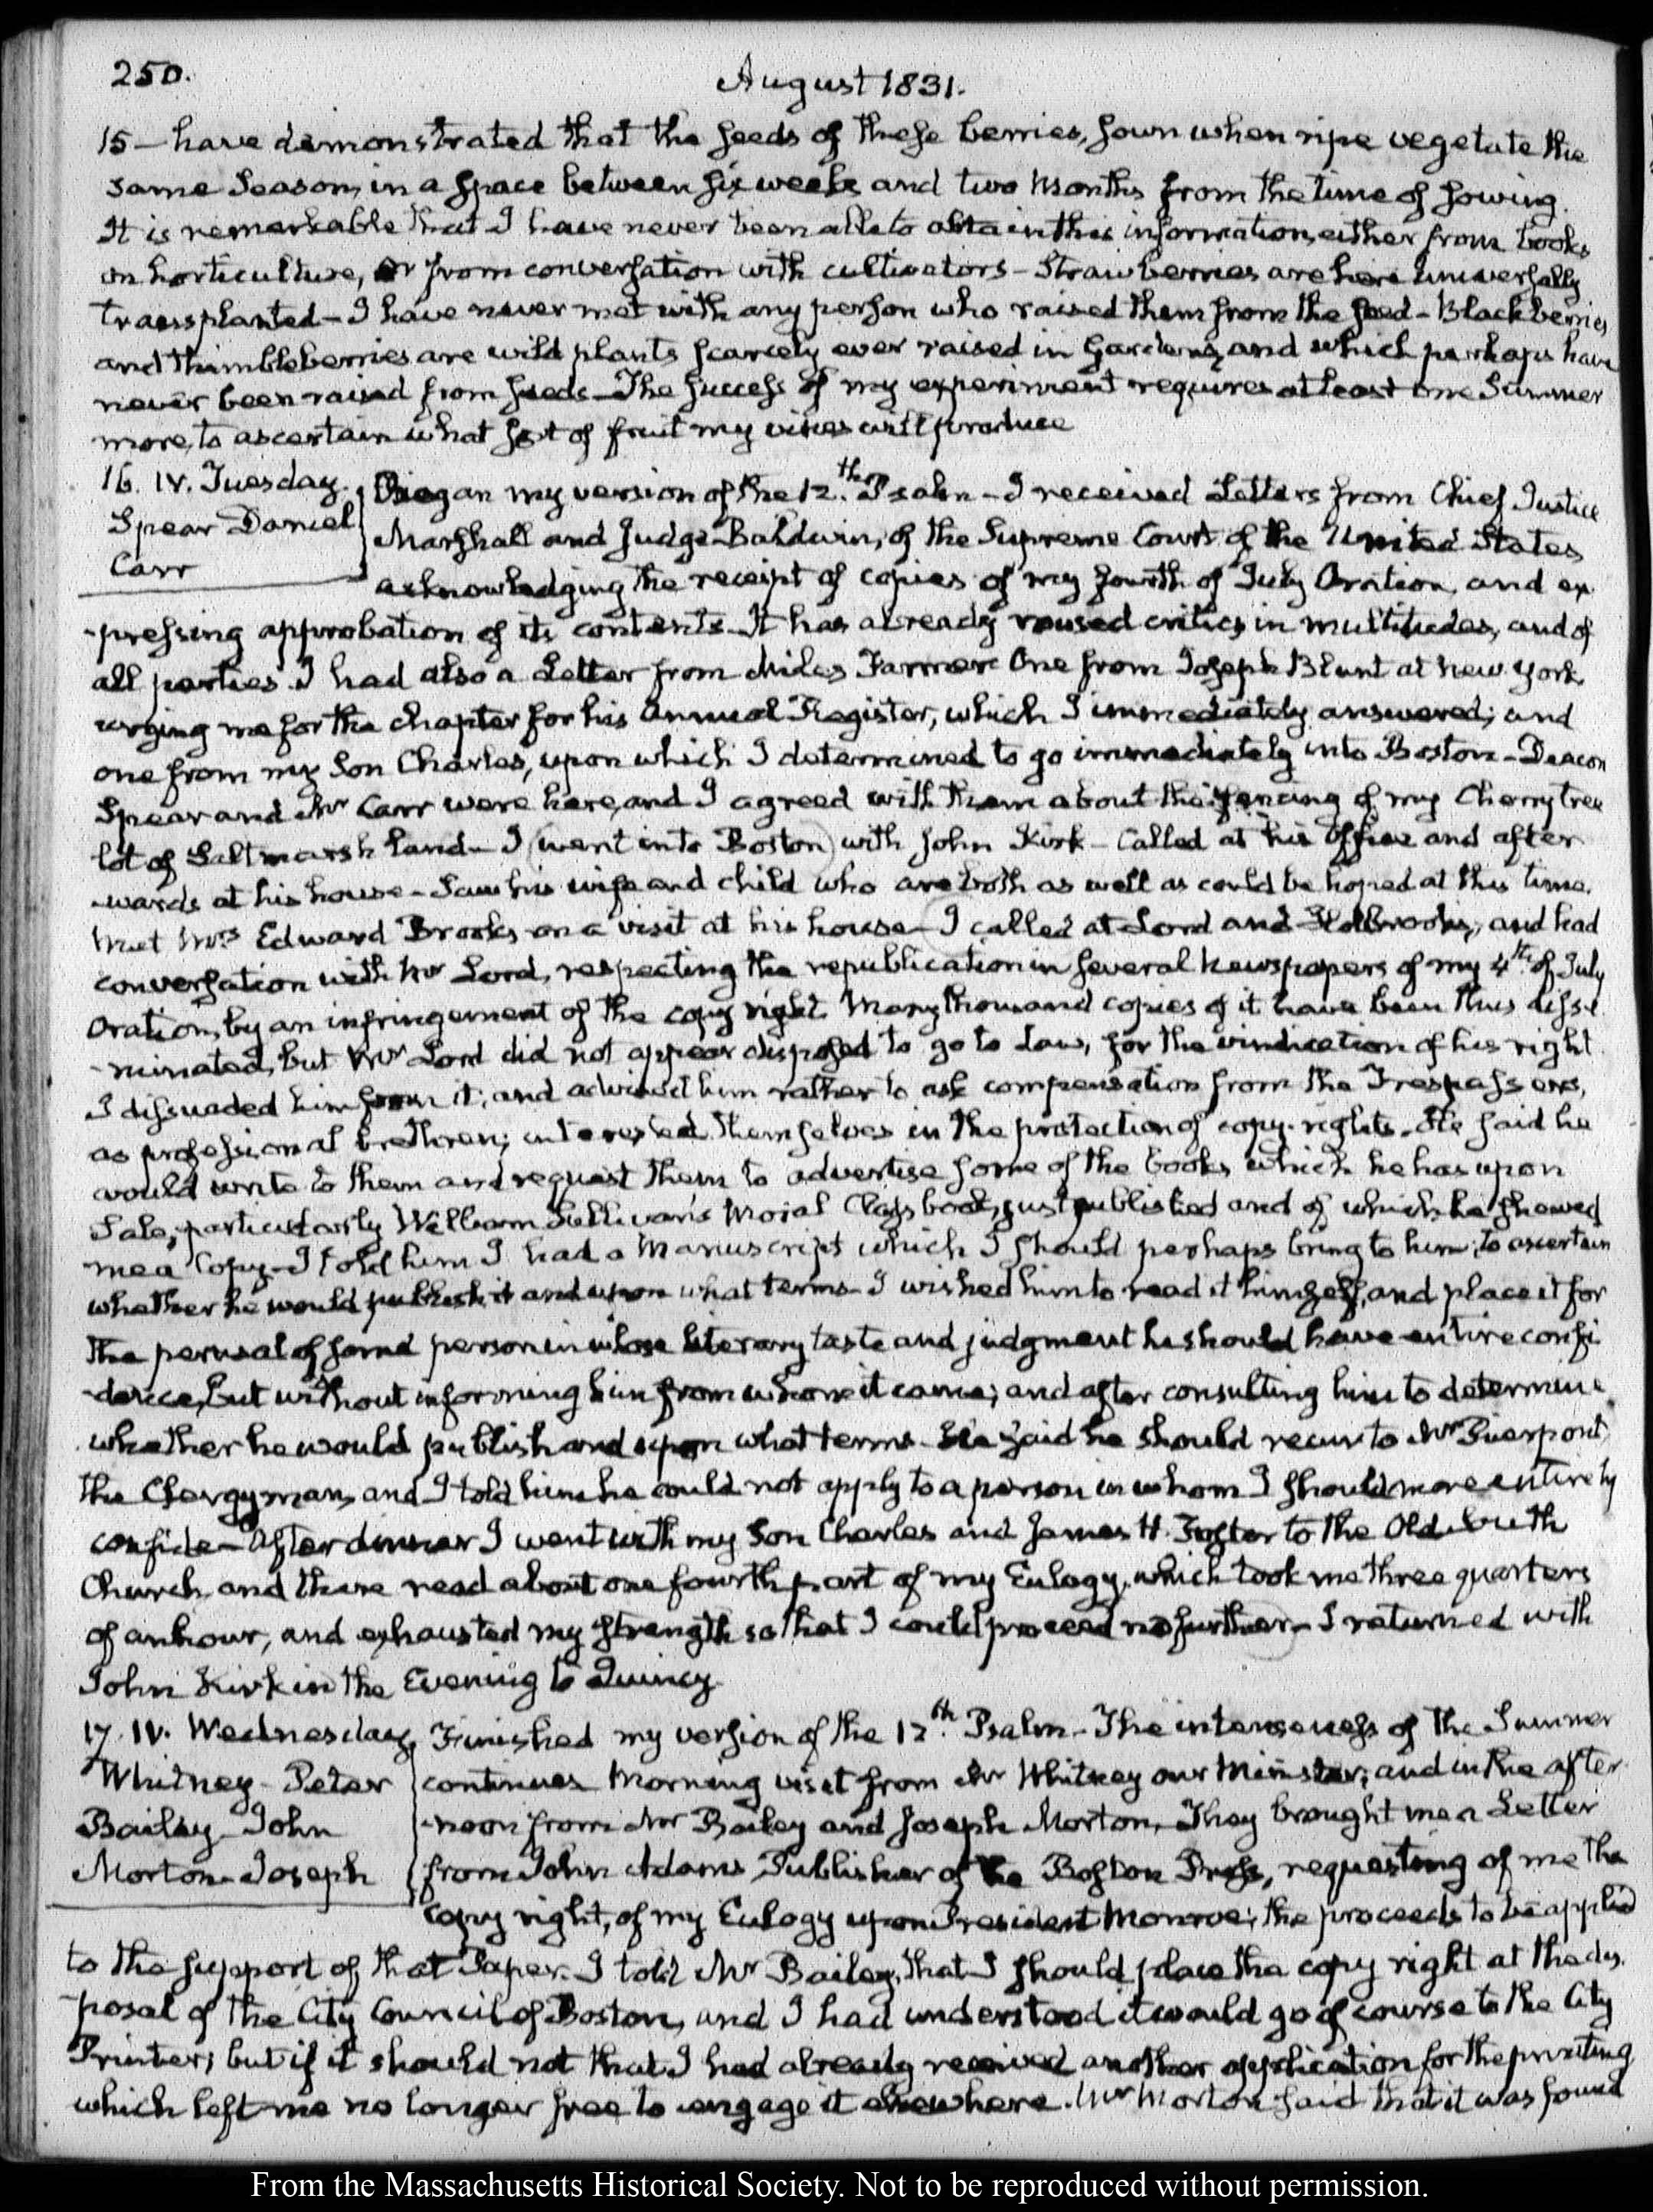 250.
August 1831.
15 – have demonstrated that the seeds of these berries, sown when ripe vegetate the
same Season, in a space between six weeks and two Months from the time of sowing.
It is remarkable that I have never been able to obtain this information, either from books
on horticulture, or from conversation with cultivators – Strawberries are here universally
transplanted – I have never met with any person who raised them from the seed – Blackberries,
and thimbleberries are wild plants, scarcely ever raised in Gardens, and which perhaps have
never been raised from seeds – The success of my experiment requires at least one Summer
more, to ascertain what sort of fruit my vines will produce
16. IV. Tuesday.
Spear Daniel
Carr
Began my version of the 12.th Psalm – I received Letters from Chief Justice
Marshall and Judge Baldwin, of the Supreme Court of the United States
acknowledging the receipt of copies of my fourth of July Oration, and ex-
-pressing approbation of its contents. It has already roused critics in multitudes, and of
all parties. I had also a Letter from Miles Farmer. One from Joseph Blunt at New York,
urging me for the chapter for his Annual Register, which I immediately answered; and
one from my Son Charles, upon which I determined to go immediately into Boston – Deacon
Spear and Mr Carr were here, and I agreed with them about the fencing of my Cherry tree
lot of Salt marsh land – I went into Boston with John Kirk – Called at his Office and after-
-wards at his house – Saw his wife and child who are both as well as could be hoped at this time.
Met Mrs Edward Brooks, on a visit at his house – I called at Lord and Holbrooks, and had
conversation with Mr Lord, respecting the republication in several Newspapers of my 4th of July
Oration, by an infringement of the copy right. Many thousand copies of it have been thus disse-
-minated, but Mr Lord did not appear disposed to go to Law, for the vindication of his right.
I dissuaded him from it; and advised him rather to ask compensation from the Trespassers,
as professional brethren; interested themselves in the protection of copy-rights. He said he
would write to them and request them to advertise some of the books which he has upon
Sale, particularly William Sullivan's Moral Class book, just published and of which he showed
me a Copy – I told him I had a Manuscript which I should perhaps bring to him; to ascertain
whether he would publish it and upon what terms – I wished him to read it himself, and place it for
the perusal of some person in whose literary taste and judgment he should have entire confi-
-dence, but without informing him from whom it came; and after consulting him to determine
whether he would publish and upon what terms. He said he should recur to Mr Pierpont,
the Clergyman, and I told him he could not apply to a person in whom I should more entirely
confide – After dinner I went with my Son Charles and James H. Foster to the Old South
Church, and there read about one fourth part of my Eulogy, which took me three quarters
of an hour, and exhausted my strength so that I could proceed no further – I returned with
John Kirk in the Evening to Quincy.
17. IV. Wednesday.
Whitney – Peter
Bailey – John
Morton – Joseph
Finished my version of the 12.th Psalm – The intenseness of the Summer
continues. Morning visit from Mr Whitney our Minister; and in the after-
-noon from Mr Bailey and Joseph Morton. They brought me a Letter
from John Adams Publisher of the Boston Press, requesting of me the
copy right, of my Eulogy upon President Monroe; the proceeds to be applied
to the support of that Paper. I told Mr Bailey, that I should place the copy right at the dis-
-posal of the City Council of Boston, and I had understood it would go of course to the City
Printer; but if it should not that I had already received another application for the printing
which left me no longer free to engage it elsewhere. Mr Morton said that it was found
From the Massachusetts Historical Society. Not to be reproduced without permission.